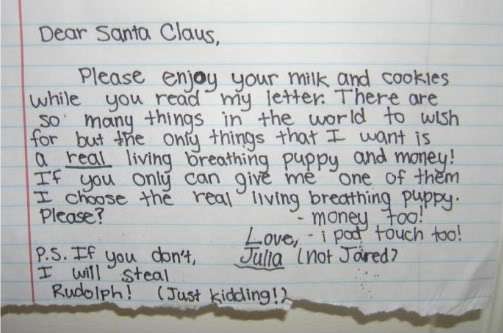 Dear Santa Claus,
Please enjoy your milk and cookies
while you read my letter. There are
so many things in the world to wish
for but the only things that I want is
a real living breathing puppy and money!
If you only can give me one of them
I choose the real living breathing puppy.
Please? - money too!
Love, - i pod touch too!
P.S. If you don't, Julia (not Jared)
I will steal
Rudolph! (Just kidding!)